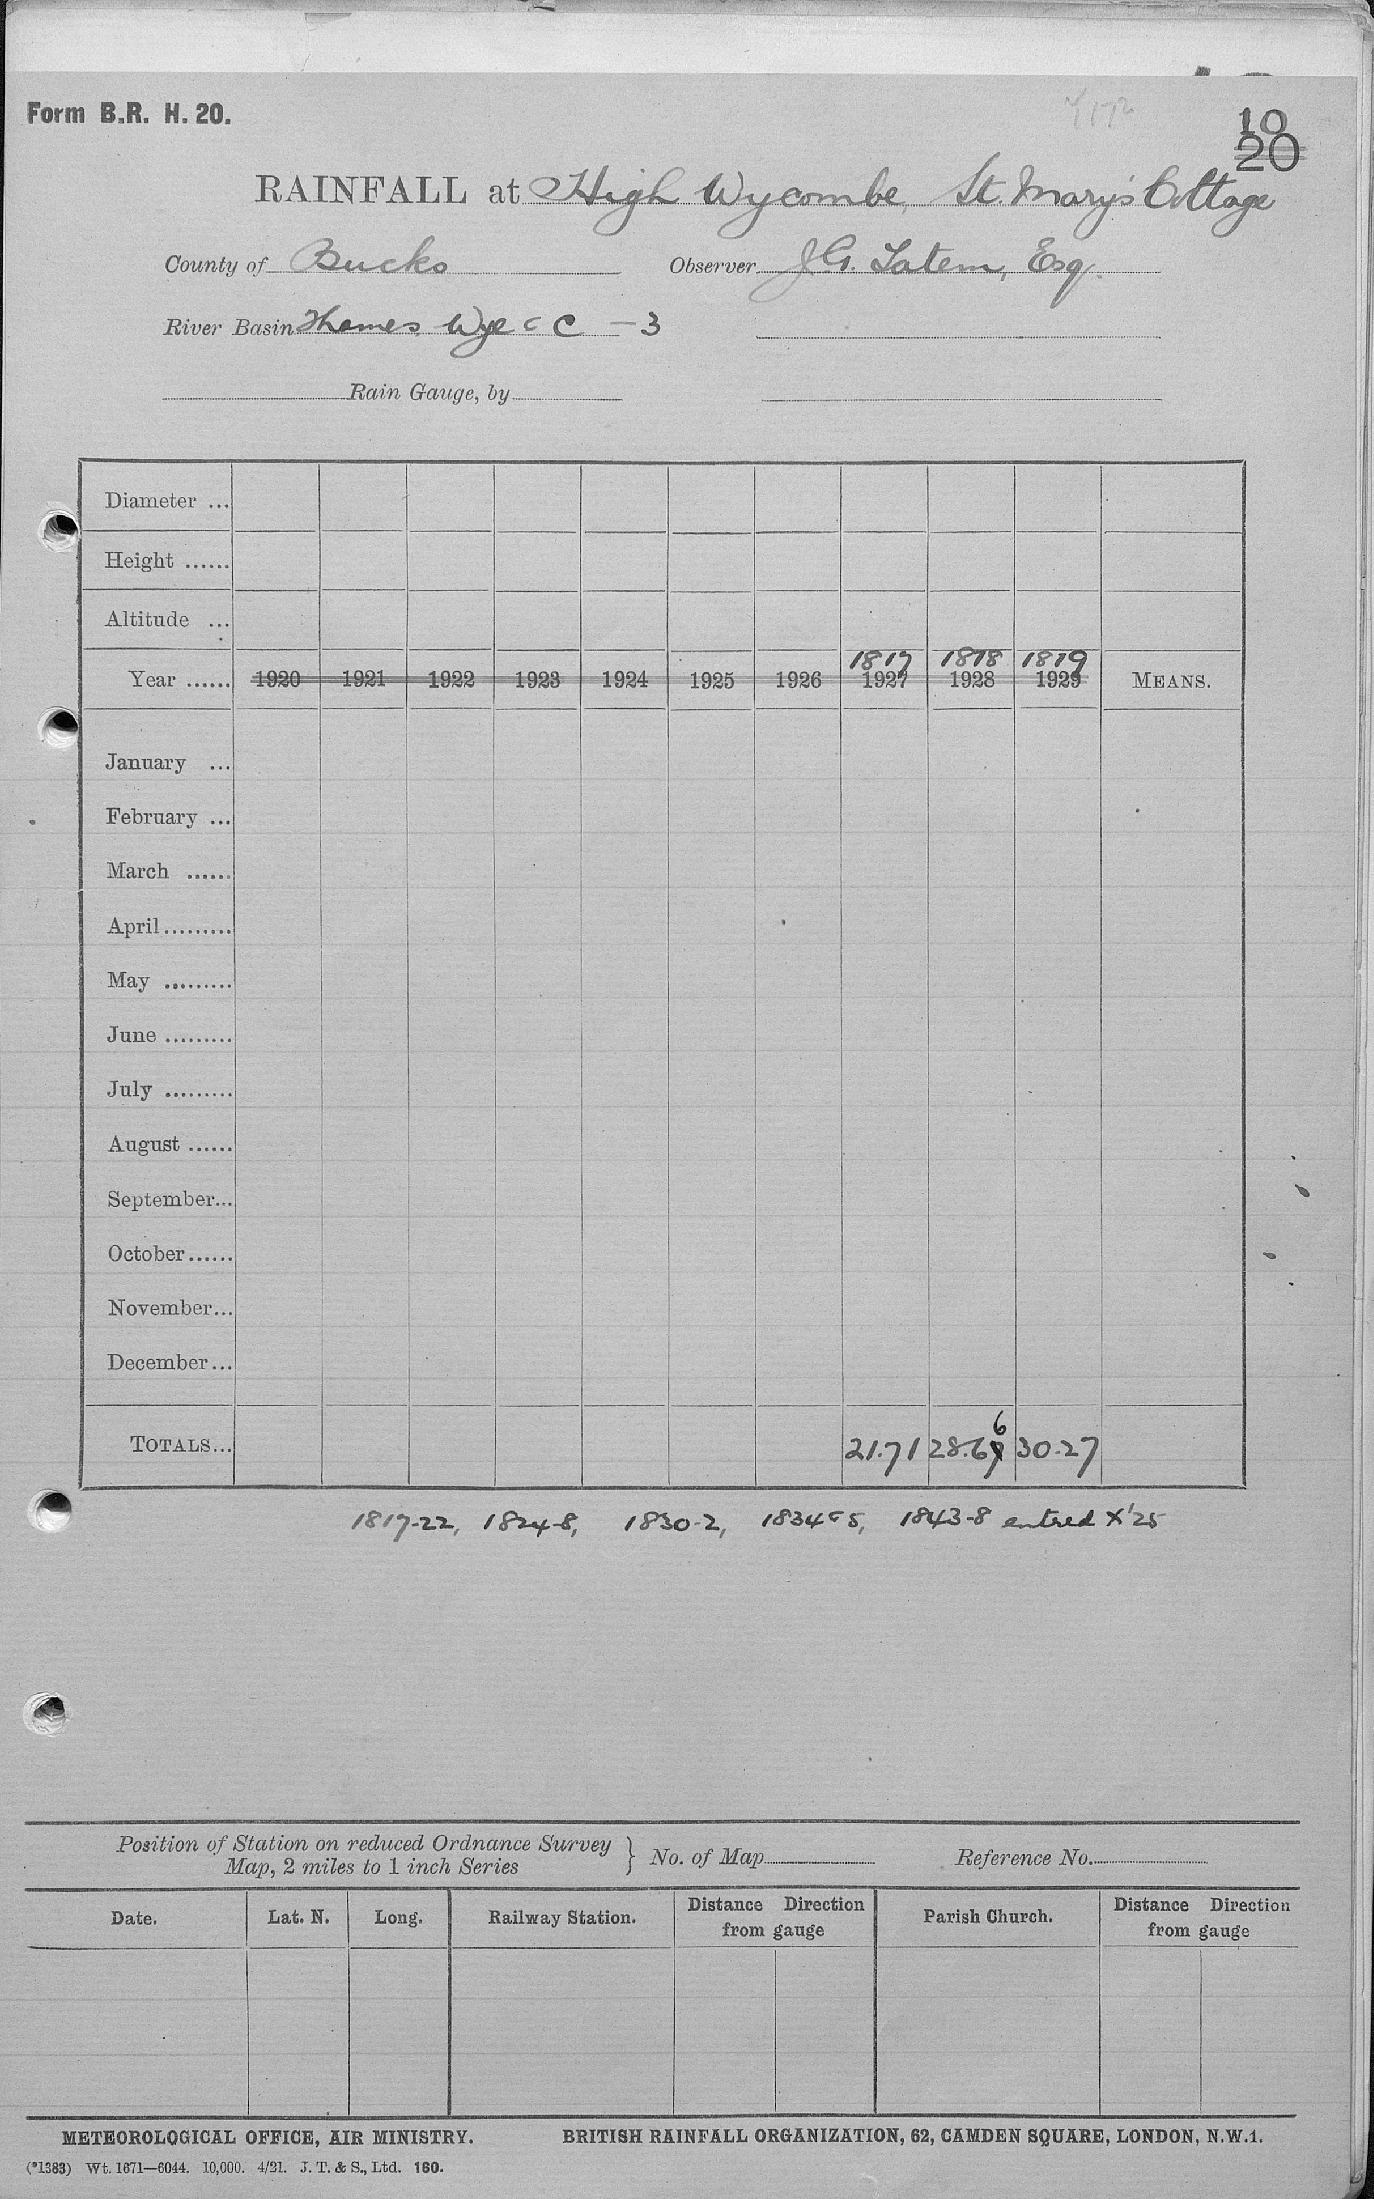 Form B.R. H. 20.
10
20
RAINFALL at High Wycombe, St. Mary's Cottage
County of Bucks Observer J.G. Tatem, Esq.
River Basin Thames, Wye C - 3
Rain Gauge, by
Diameter ...
Height ......
Altitude ...
1817 1818 1819
Year ...... 1920 1921 1922 1923 1924 1925 1926 1927 1928 1929 MEANS.
January ...
February ...
March ......
April.........
May .........
June .........
July .........
August ......
September...
October......
November...
December...
6
TOTALS... 21.71 28.67 30.27
1817-22, 1824-8, 1830-2, 1834 5, 1843-8 entred X'25
Position of Station on reduced Ordnance Survey
Map, 2 miles to 1 inch Series } No. of Map Reference No.
Date. Lat. N. Long. Railway Station. Distance Direction from gauge Parish Church. Distance Direction from gauge
METEOROLOGICAL OFFICE, AIR MINISTRY. BRITISH RAINFALL ORGANIZATION, 62, CAMDEN SQUARE, LONDON, N.W.1.
(*1383) Wt. 1671—6044. 10,000. 4/21. J. T. & S., Ltd. 160.